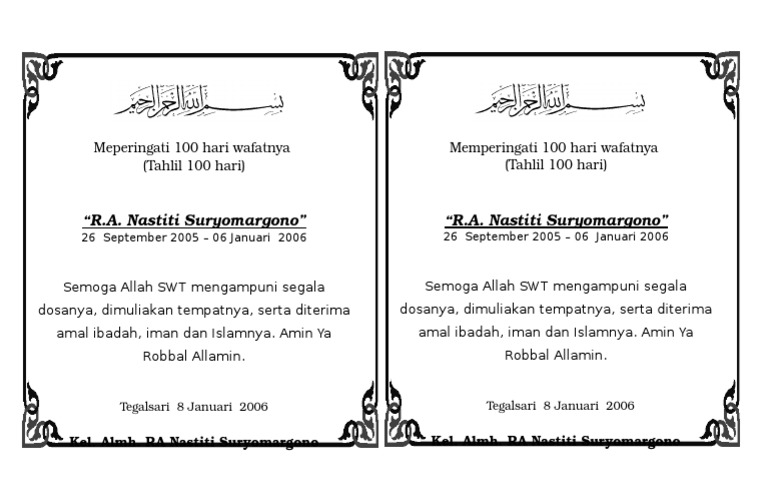 بسم الله الرحمن الرحيم
Meperingati 100 hari wafatnya
(Tahlil 100 hari)
“R.A. Nastiti Suryomargono”
26 September 2005 – 06 Januari 2006
Semoga Allah SWT mengampuni segala
dosanya, dimuliakan tempatnya, serta diterima
amal ibadah, iman dan Islamnya. Amin Ya
Robbal Allamin.
Tegalsari 8 Januari 2006
Kel. Almh. RA Nastiti Suryomargono
بسم الله الرحمن الرحيم
Memperingati 100 hari wafatnya
(Tahlil 100 hari)
“R.A. Nastiti Suryomargono”
26 September 2005 – 06 Januari 2006
Semoga Allah SWT mengampuni segala
dosanya, dimuliakan tempatnya, serta diterima
amal ibadah, iman dan Islamnya. Amin Ya
Robbal Allamin.
Tegalsari 8 Januari 2006
Kel. Almh. RA Nastiti Suryomargono